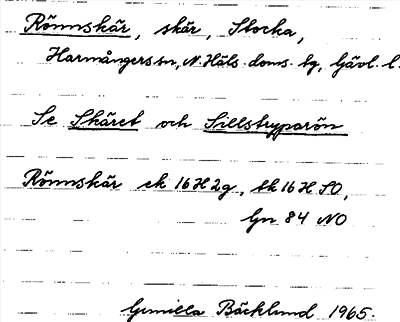 Rönnskär, skär, Stocka,
Harmångers sn, N. Häls. doms. tg, Gävl. l.
Se Skäret och Sillstryparön
Rönnskär ek 16H2g, tk 16 H SO,
Gn 84 NO
Gunilla Bäcklund 1965.